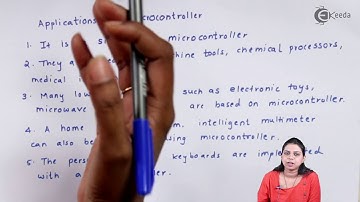 Applications microcontroller
Ekeeda
1. It is microcontroller
2. They a machine tools, chemical processors,
medical i
3. Many low such as electronic toys,
microwave are based on microcontroller.
4. A home intelligent multimeter
can also be using microcontroller.
5. The pers keyboards are implemented
with a